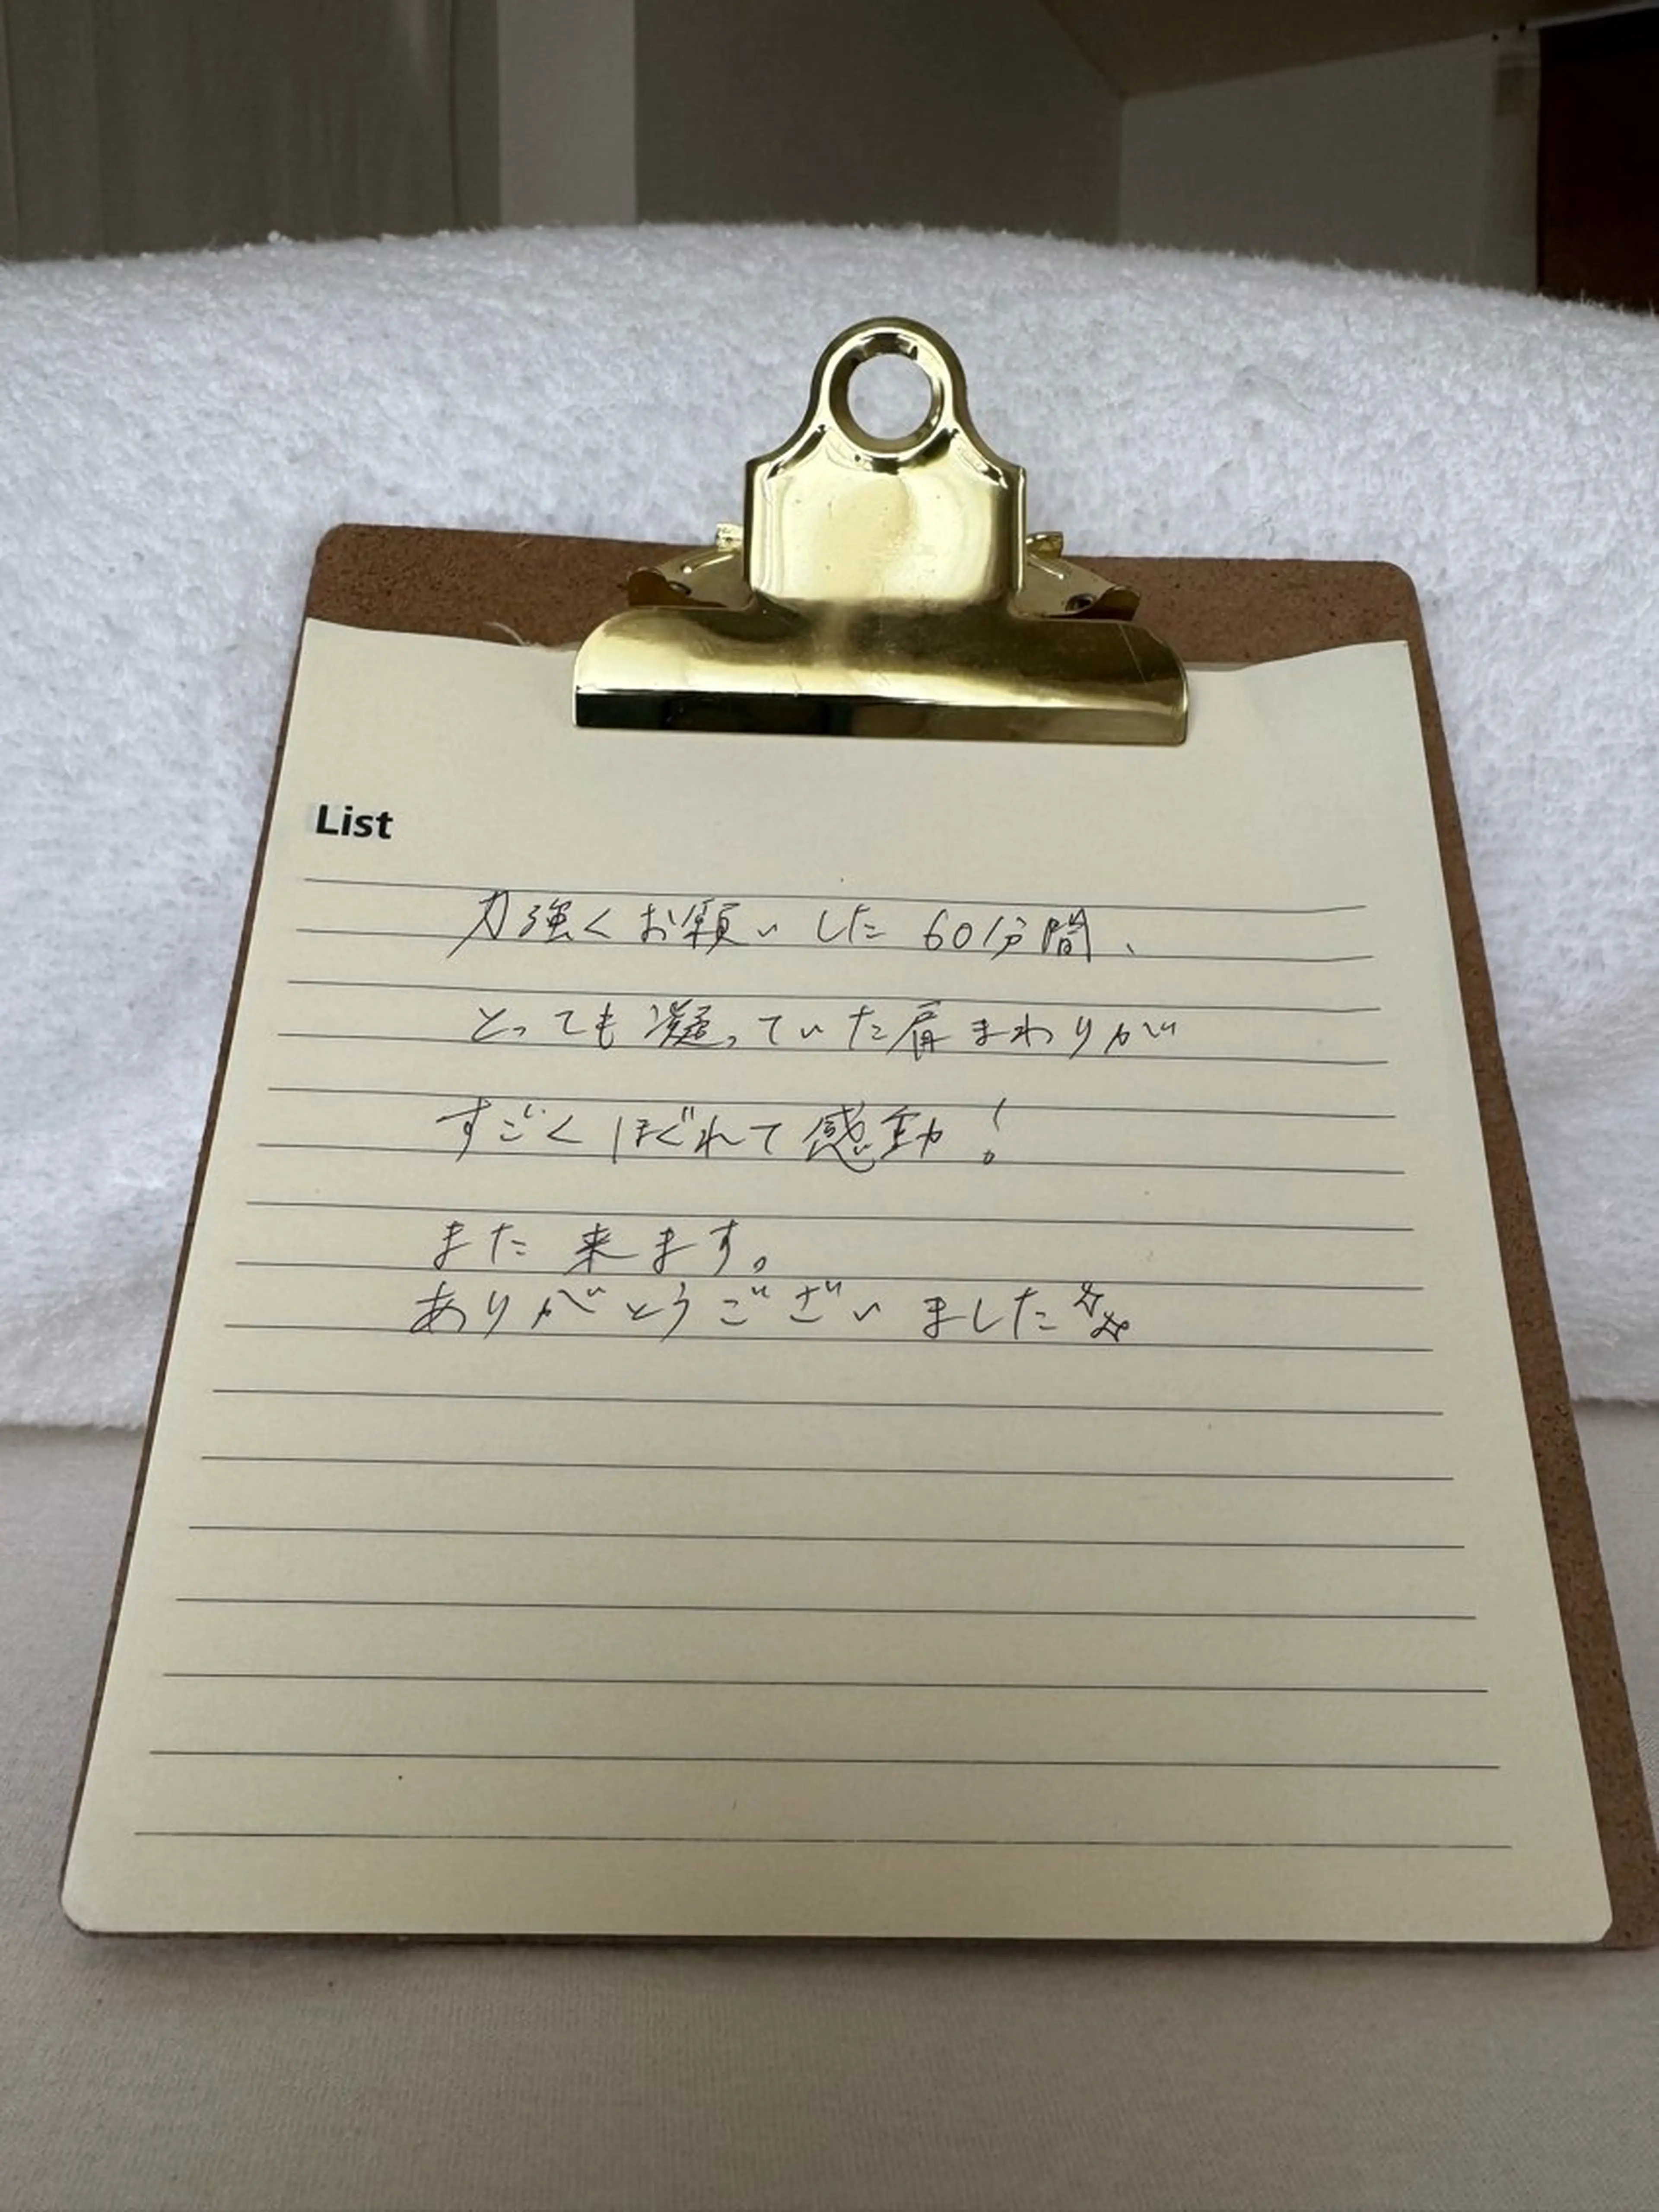 List
力強くお願いした60分間、
とっても凝っていた肩まわりが
すごくほぐれて感動!
また来ます。
ありがとうございました